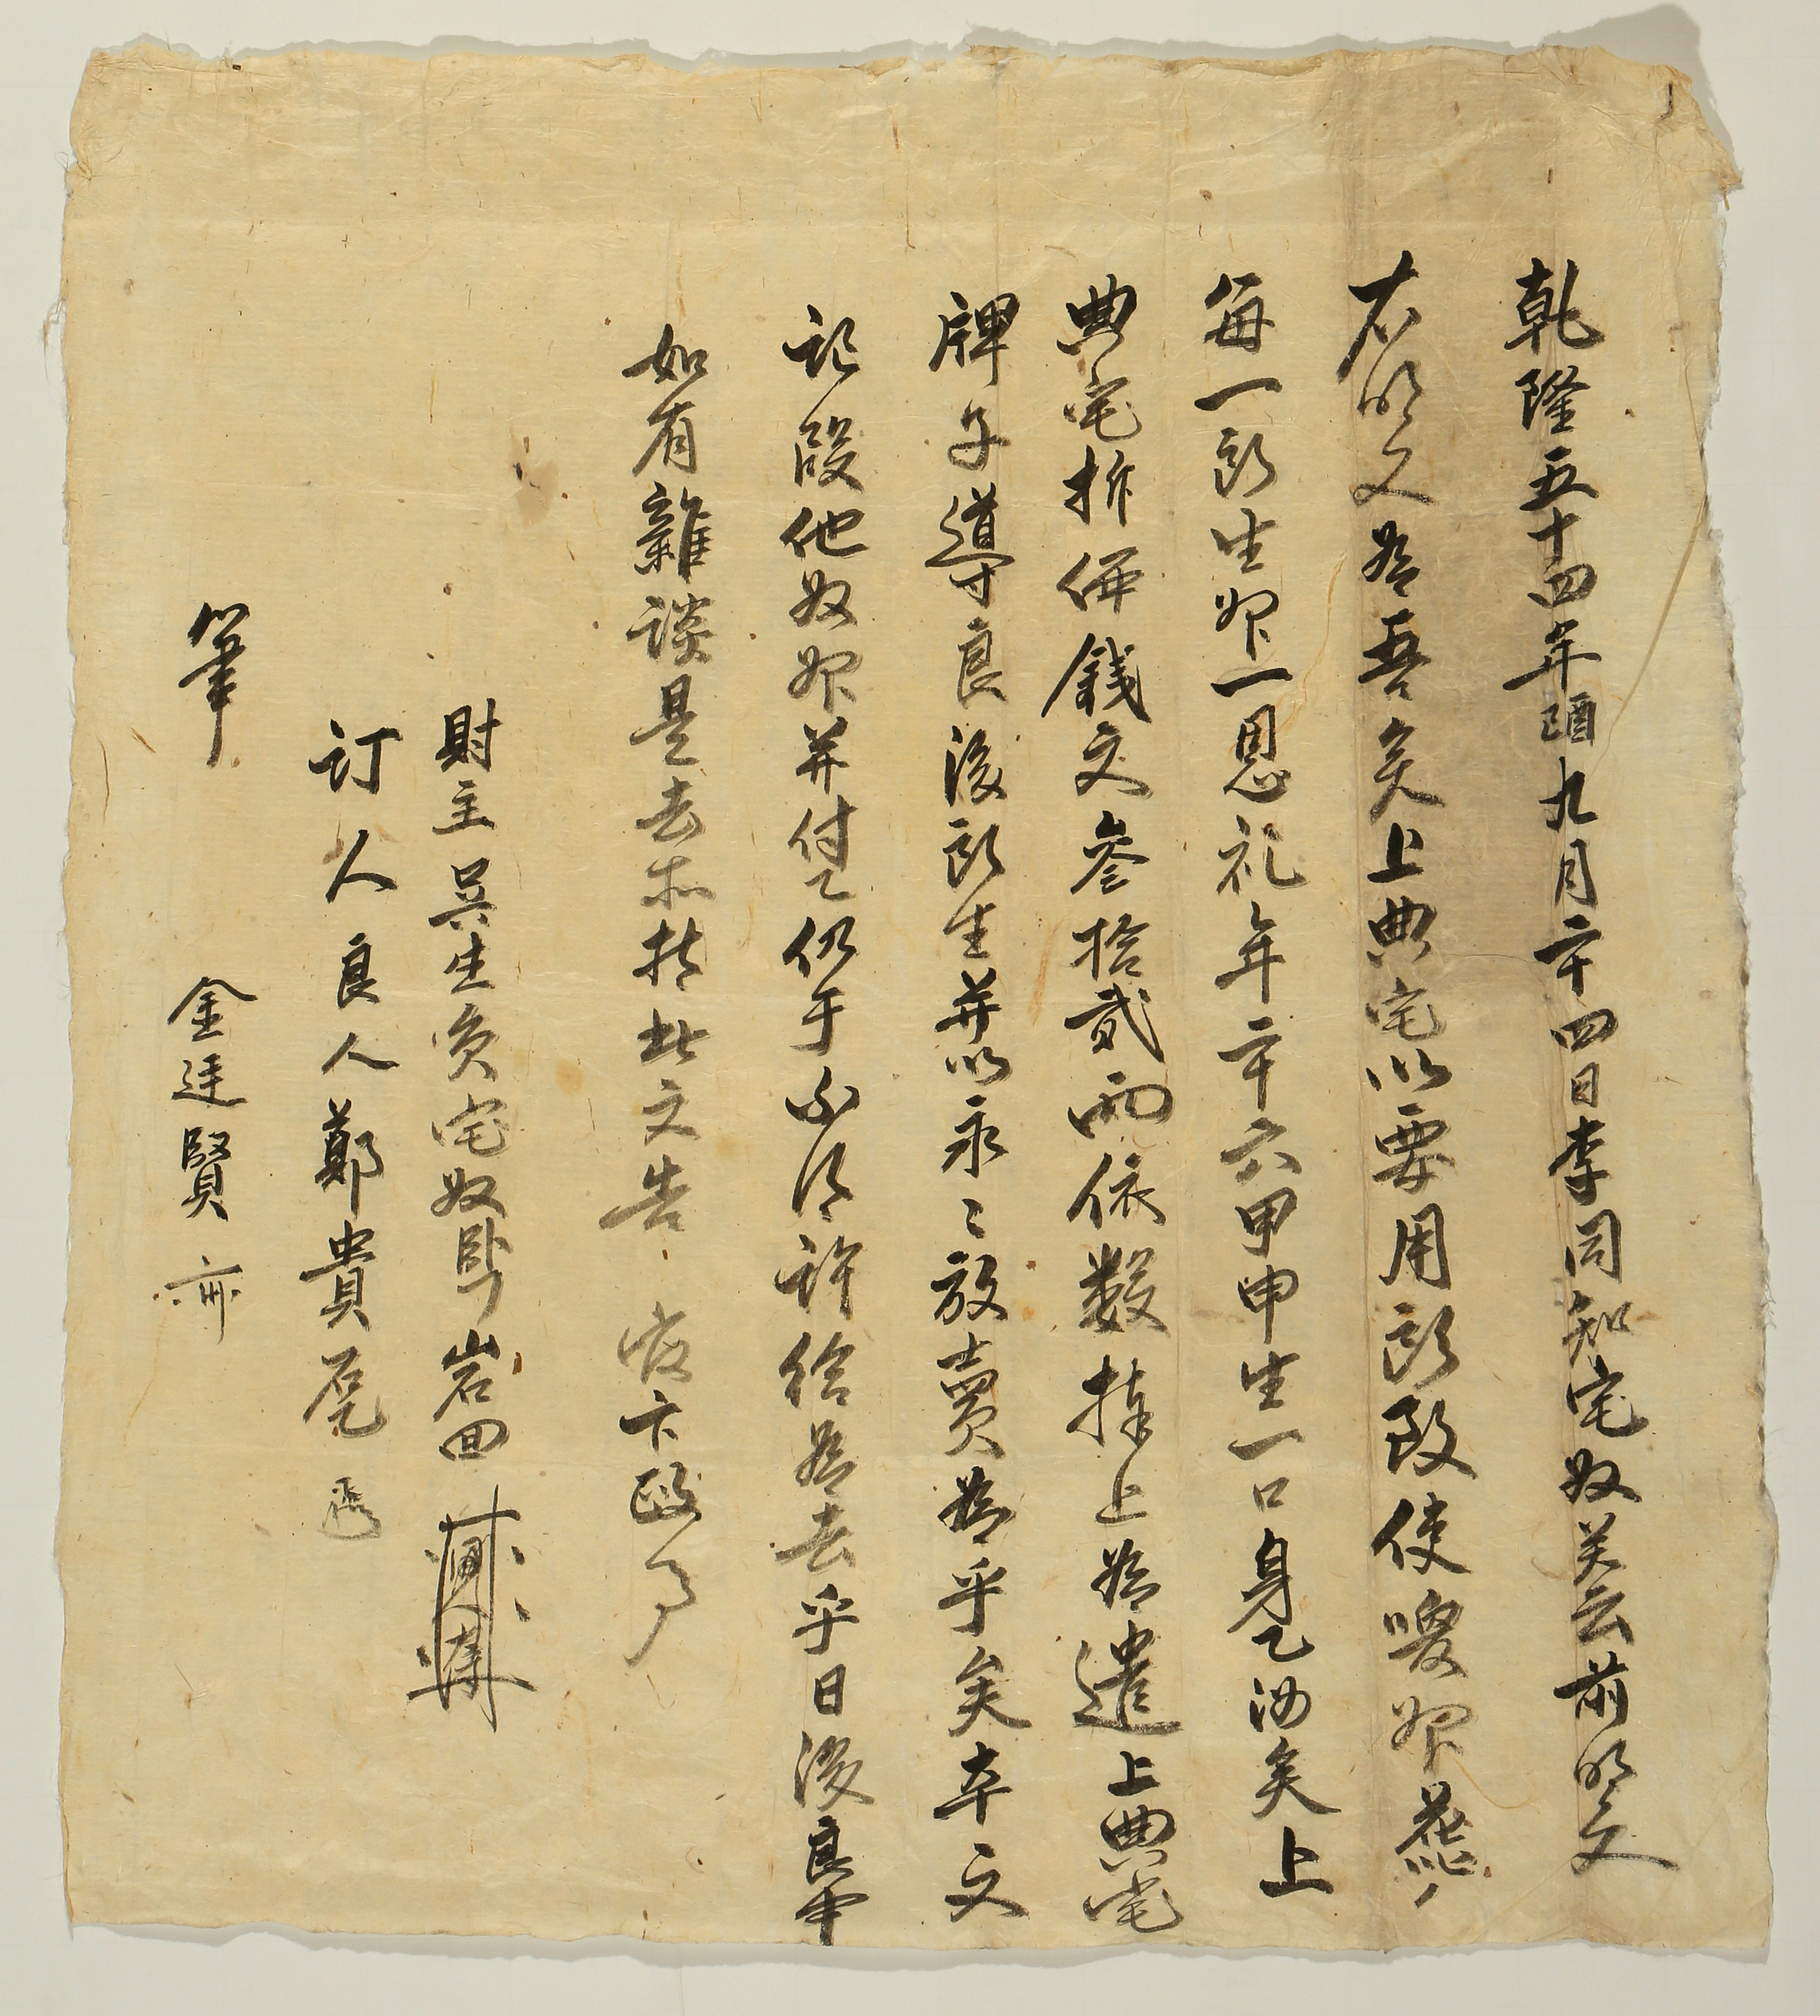 乾隆五十四年己酉九月二十四日李同知宅奴关云前明文
右明文爲吾矣上典宅以要用所致使喚婢
每一所生婢一恩礼年二十六甲申生一口身乙汝矣上
典宅折価錢文參拾貳兩依數捧上爲遣上典宅
牌子導良後所生并以永〻放賣爲乎矣本文
記段他奴婢并付乙仍于不得許給爲去乎日後良中
如有雜談是去等持此文告官卞正事
財主吳生員宅奴 岩回
訂人良人鄭貴
筆 金廷賢